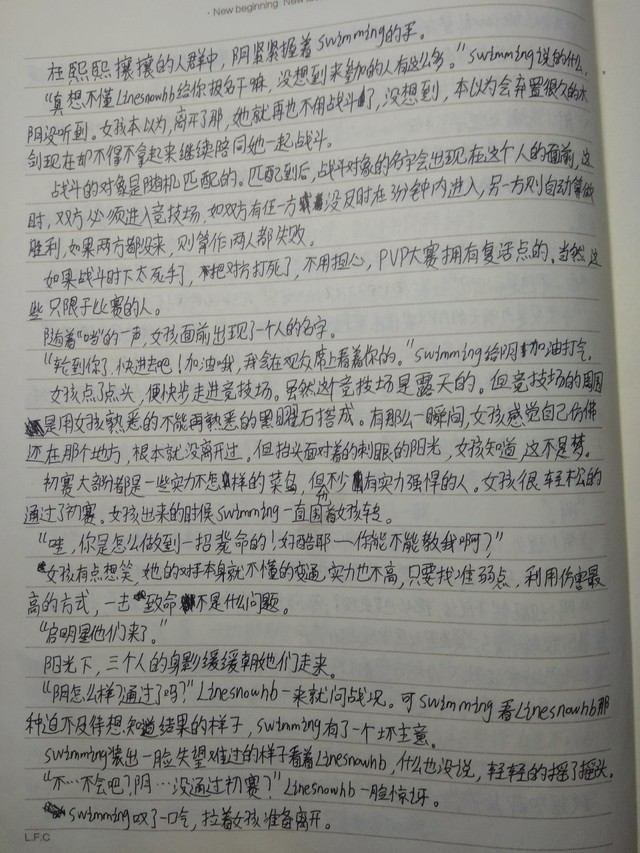 · New beginning New
在熙熙攘攘的人群中，阴紧紧握着swimming的手。
“真想不懂Linesnowhb给你报名干嘛，没想到来参加的人有这么多。”swimming说的什么，
阴没听到。女孩本以为，离开了那，她就再也不用战斗了，没想到，本以为会弃置很久的木
剑现在却不得不拿起来继续陪同她一起战斗。
战斗的对象是随机匹配的。匹配到后，战斗对象的名字会出现在这个人的面前，这
时，双方必须进入竞技场，如双方有任一方没及时在3分钟内进入，另一方则自动算做
胜利，如果两方都没来，则算作两人都失败。
如果战斗时下太死手了，把对方打死了，不用担心，PVP大赛拥有复活点的，当然，这
些只限于比赛的人。
随着“当”的一声，女孩面前出现了一个人的名字。
“轮到你了，快进去吧！加油哦，我会在观众席上看着你的。”swimming给阴加油打气。
女孩点了点头，便快步走进竞技场。虽然这个竞技场是露天的。但竞技场的周围
是用女孩熟悉的不能再熟悉的黑曜石搭成。有那么一瞬间，女孩感觉自己仿佛
还在那个地方，根本就没离开过。但抬头面对着的刺眼的阳光，女孩知道，这不是梦。
初赛大部份都是一些实力不怎样的菜鸟，但不少有实力强悍的人。女孩很轻松的
通过了初赛。女孩出来的时候swimming一直围着女孩转。
“哇，你是怎么做到一招毙命的！好酷耶——你能不能教我啊？”
女孩有点想笑，她的对手本身就不懂的变通，实力也不高，只要找准弱点，利用伤害最
高的方式，一击致命不是什么问题。
“启明星他们来了。”
阳光下，三个人的身影缓缓朝她们走来。
“阴怎么样？通过了吗？”Linesnowhb一来就问战况。可swimming看Linesnowhb那
种迫不及待想知道结果的样子，swimming有了一个坏主意。
swimming装出一脸失望难过的样子看着Linesnowhb，什么也没说，轻轻的摇了摇头。
“不…不会吧？阴…没通过初赛？”Linesnowhb一脸惊讶。
swimming叹了一口气，拉着女孩准备离开。
L.F.C